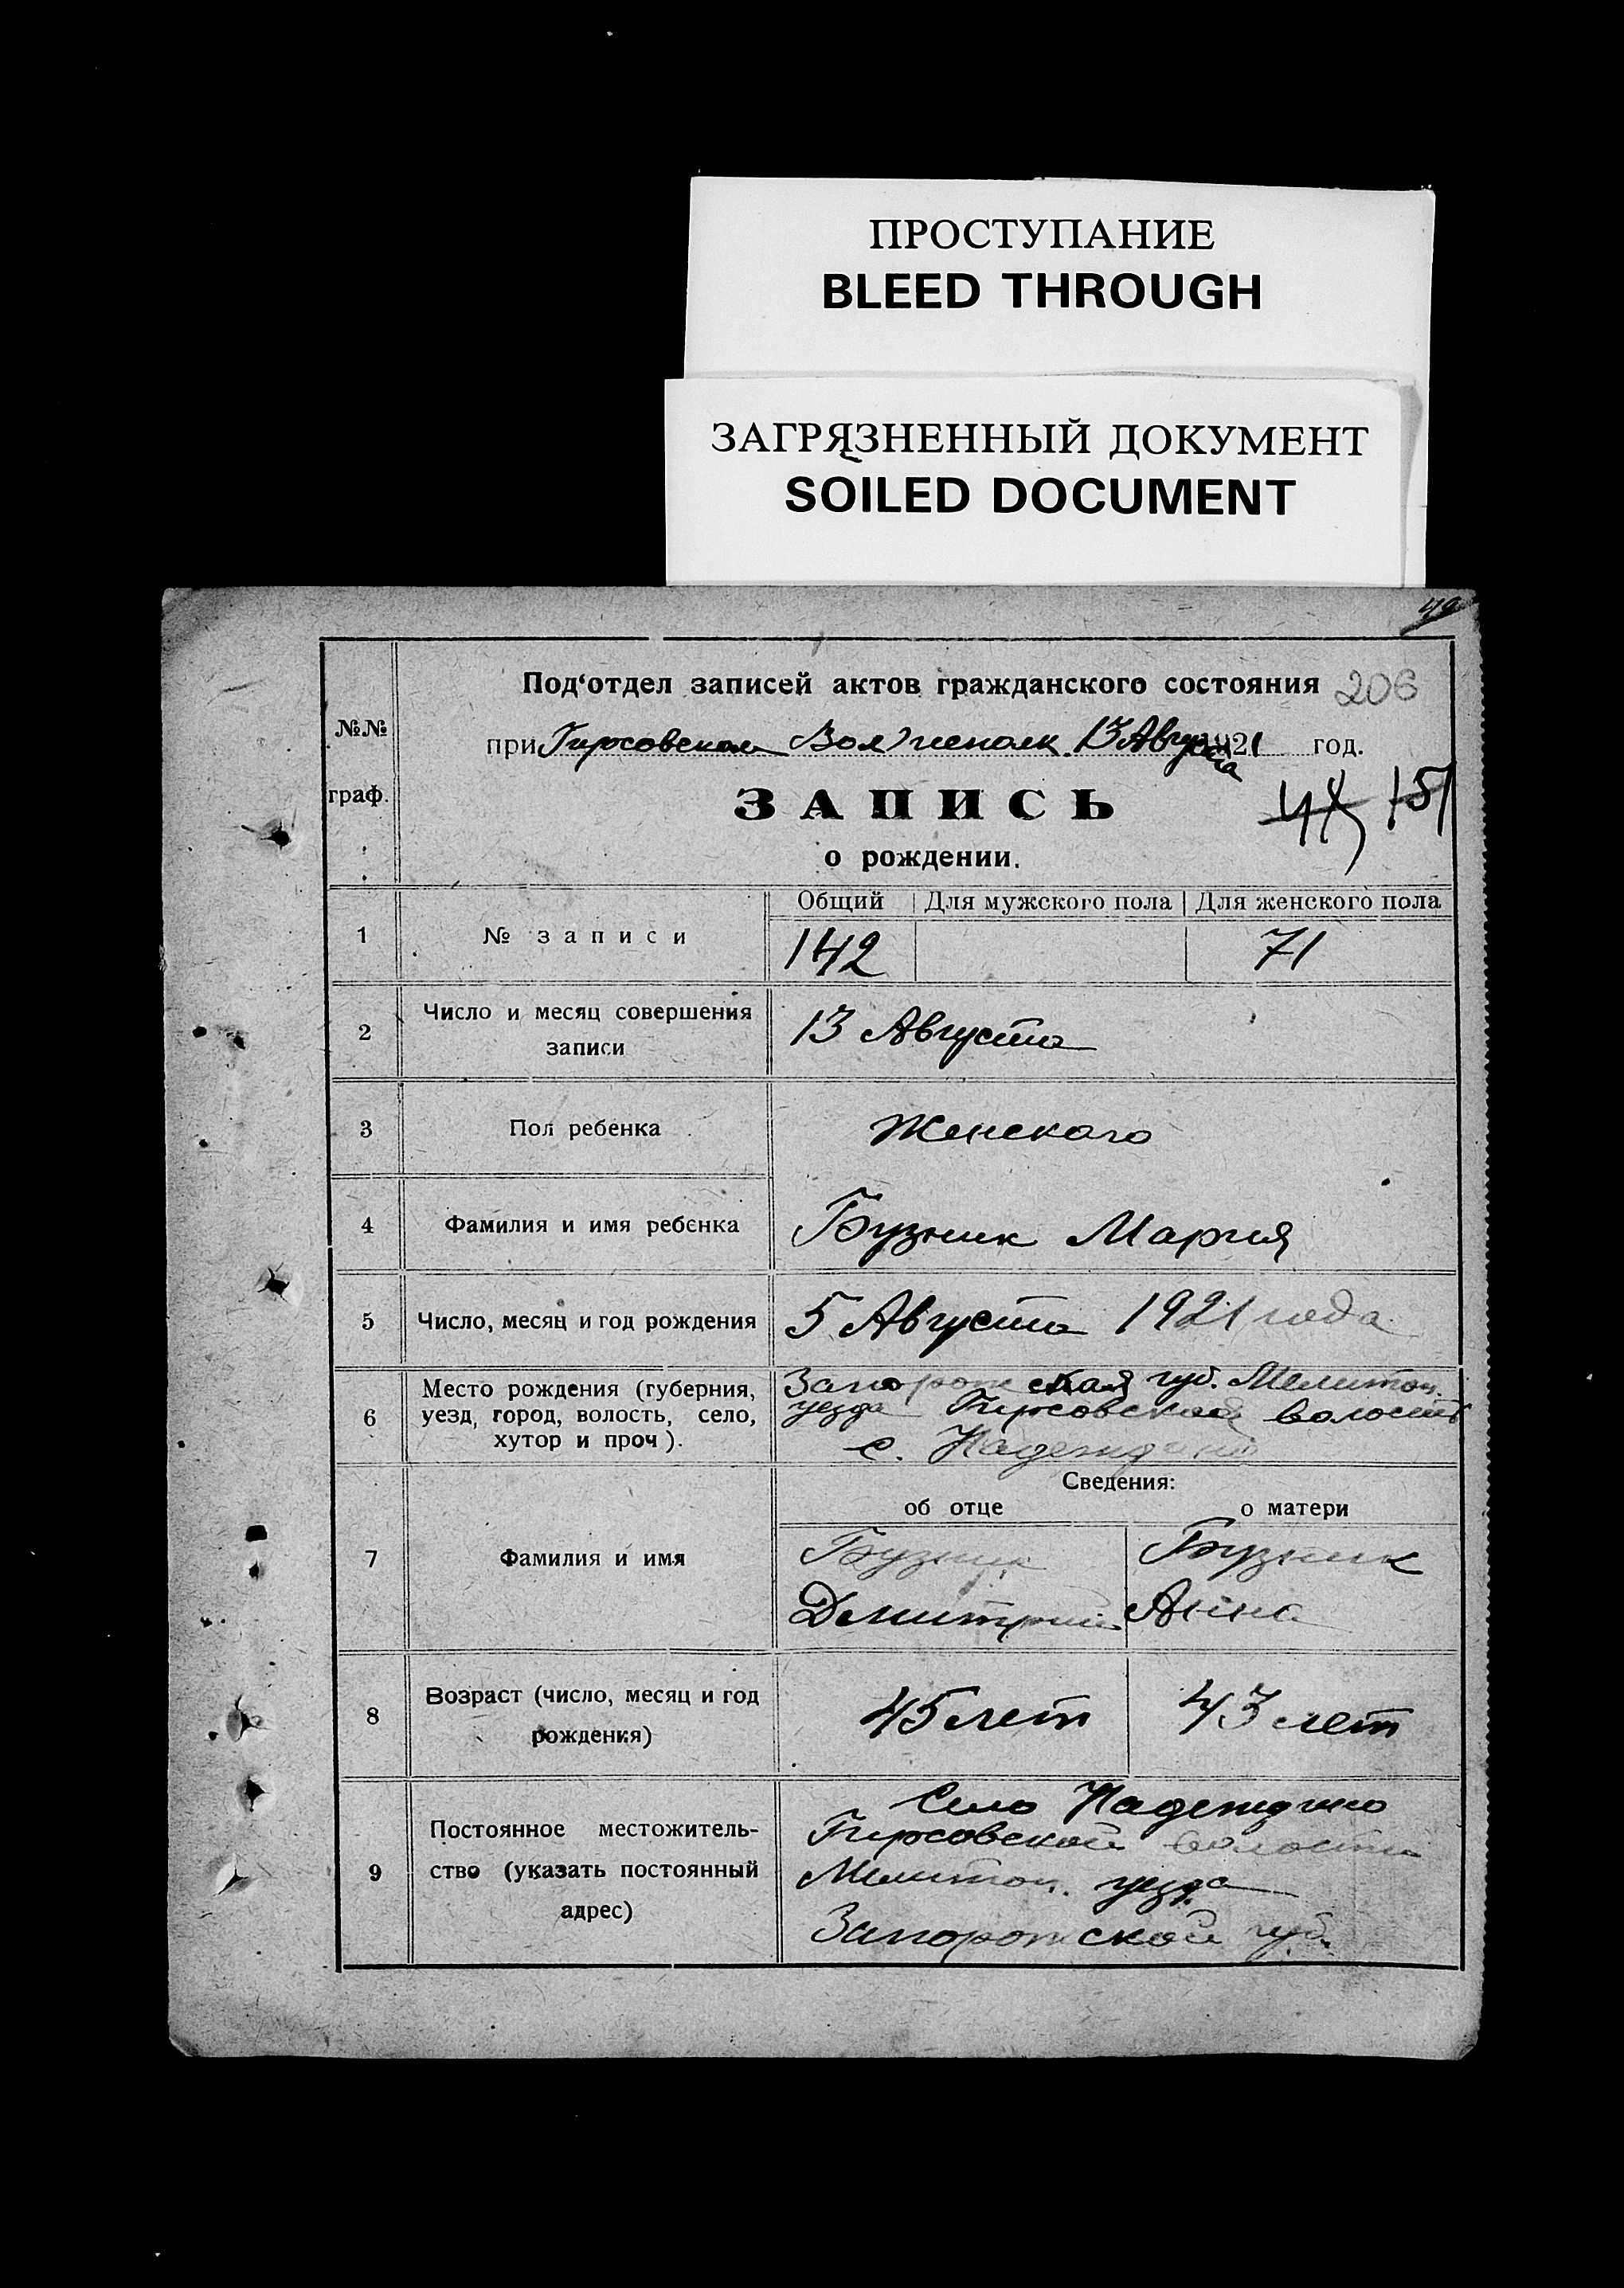 ПРОСТУПАНИЕ
BLEED THROUGH
ЗАГРЯЗНЕННЫЙ ДОКУМЕНТ
SOILED DOCUMENT
49
Под'отдел записей актов гражданского состояния 206
№№
при Гирсовском Волисполк. 13 Августа 1921 год.
граф.
ЗАПИСЬ 151
о рождении.
Общий Для мужского пола Для женского пола
1 № записи 142 71
2 Число и месяц совершения
записи
13 Августа
3 Пол ребенка Женского
4 Фамилия и имя ребенка Бузник Мария
5 Число, месяц и год рождения 5 Августа 1921 года
6 Место рождения (губерния,
уезд, город, волость, село,
хутор и проч).
Запорожская губ. Мелитоп.
уезда Гирсовской волости
с. Надеждино
Сведения:
об отце о матери
7 Фамилия и имя
Бузник Бузник
Дмитрий Анна
8 Возраст (число, месяц и год
рождения)
45 лет 43 лет
9 Постоянное местожитель-
ство (указать постоянный
адрес)
Село Надеждино
Гирсовской волости
Мелитоп. уезда
Запорожской губ.